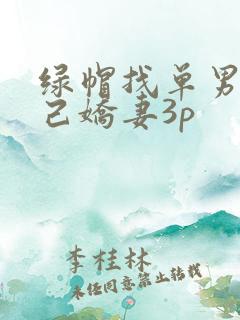 绿帽找单男
己嬌妻3p
李桂林
未经同意禁止转载